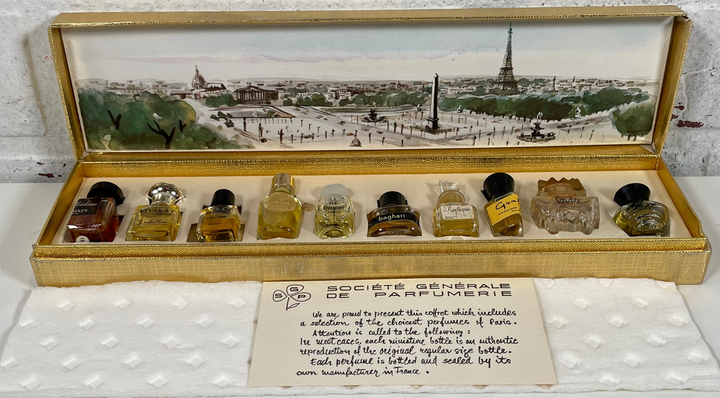 baghari
Réplique
S G P
SOCIÉTÉ GÉNÉRALE
DE PARFUMERIE
We are proud to present this coffret which includes
a selection of the choicest perfumes of Paris.
Attention is called to the following :
In most cases, each miniature bottle is an authentic
reproduction of the original regular size bottle.
Each perfume is bottled and sealed by its
own manufacturer in France.